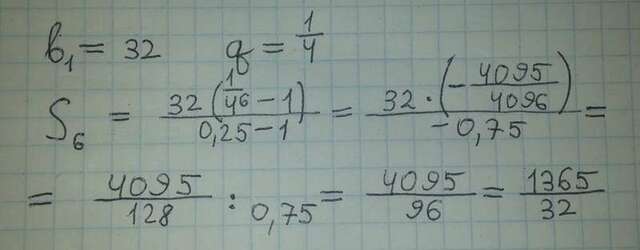 b₁ = 32 q = 1/4
S₆ = 32(1/4⁶ - 1)/0,25 - 1 = 32 · (- 4095/4096)/- 0,75 =
= 4095/128 : 0,75 = 4095/96 = 1365/32